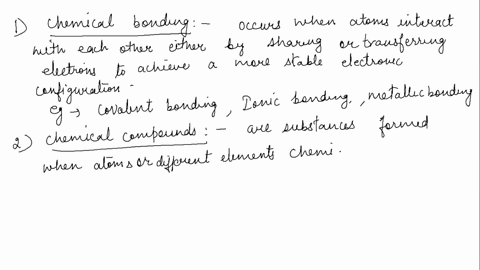 1) Chemical bonding :- occurs when atoms interact
with each other either by sharing or transferring
electrons to achieve a more stable electronic
configuration -
eg → covalent bonding , Ionic bonding , metallic bonding
2) chemical compounds : - are substances formed
when atoms or different elements chemi .